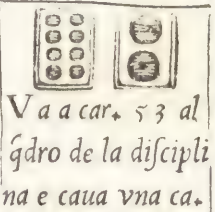 Va a car. 53 al
q̃dro de la diſcipli
na e caua vna ca.